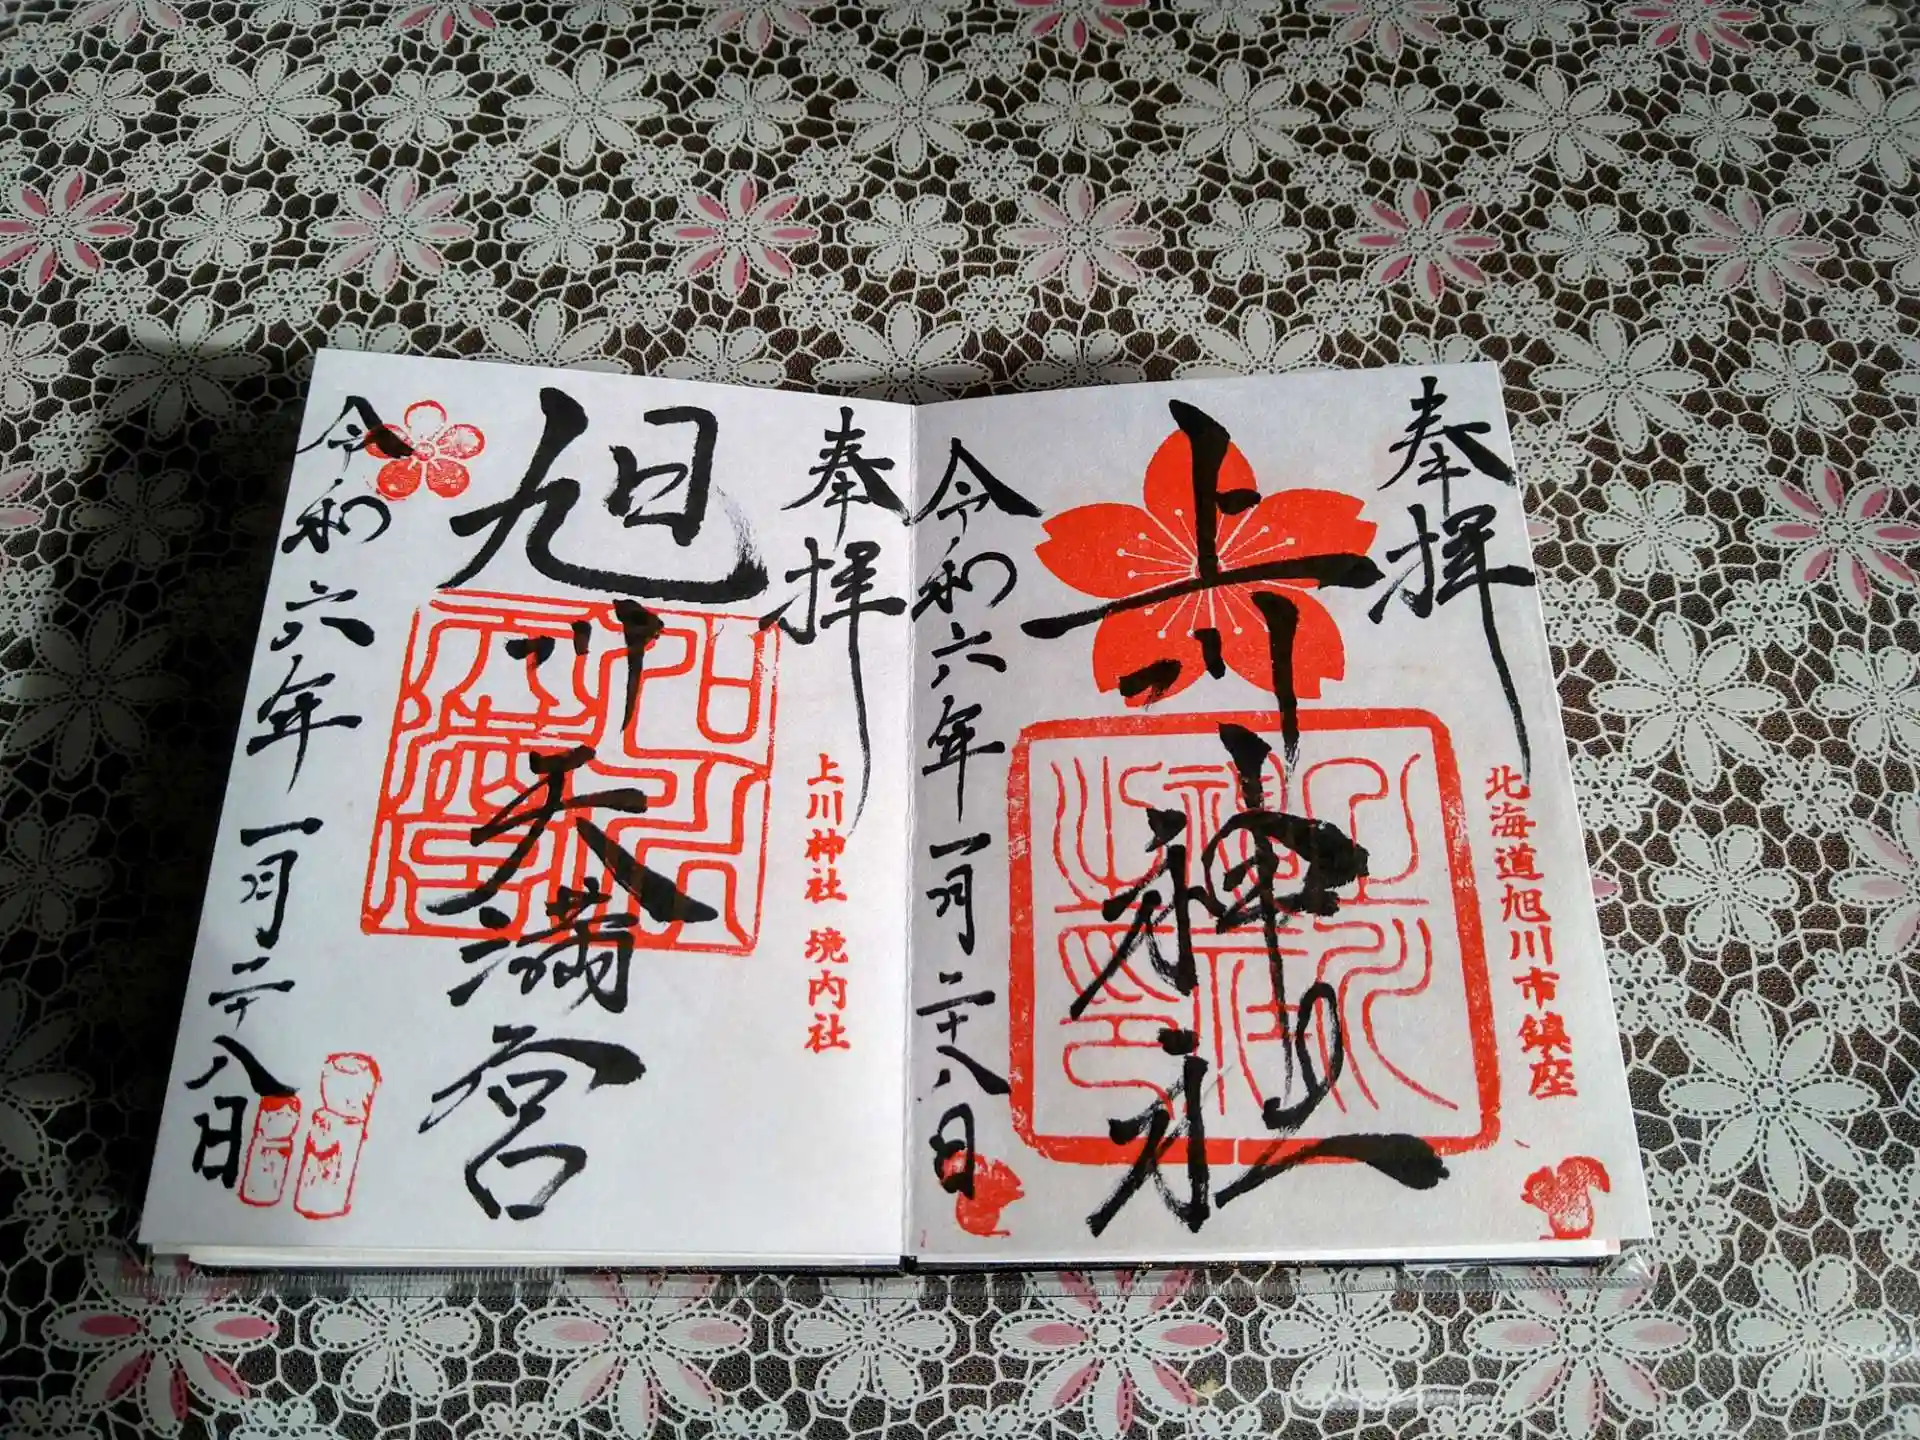 奉拝
北海道旭川市鎮座
上川神社
令和六年一月二十八日
奉拝
上川神社 境内社
旭川天満宮
令和六年一月二十八日